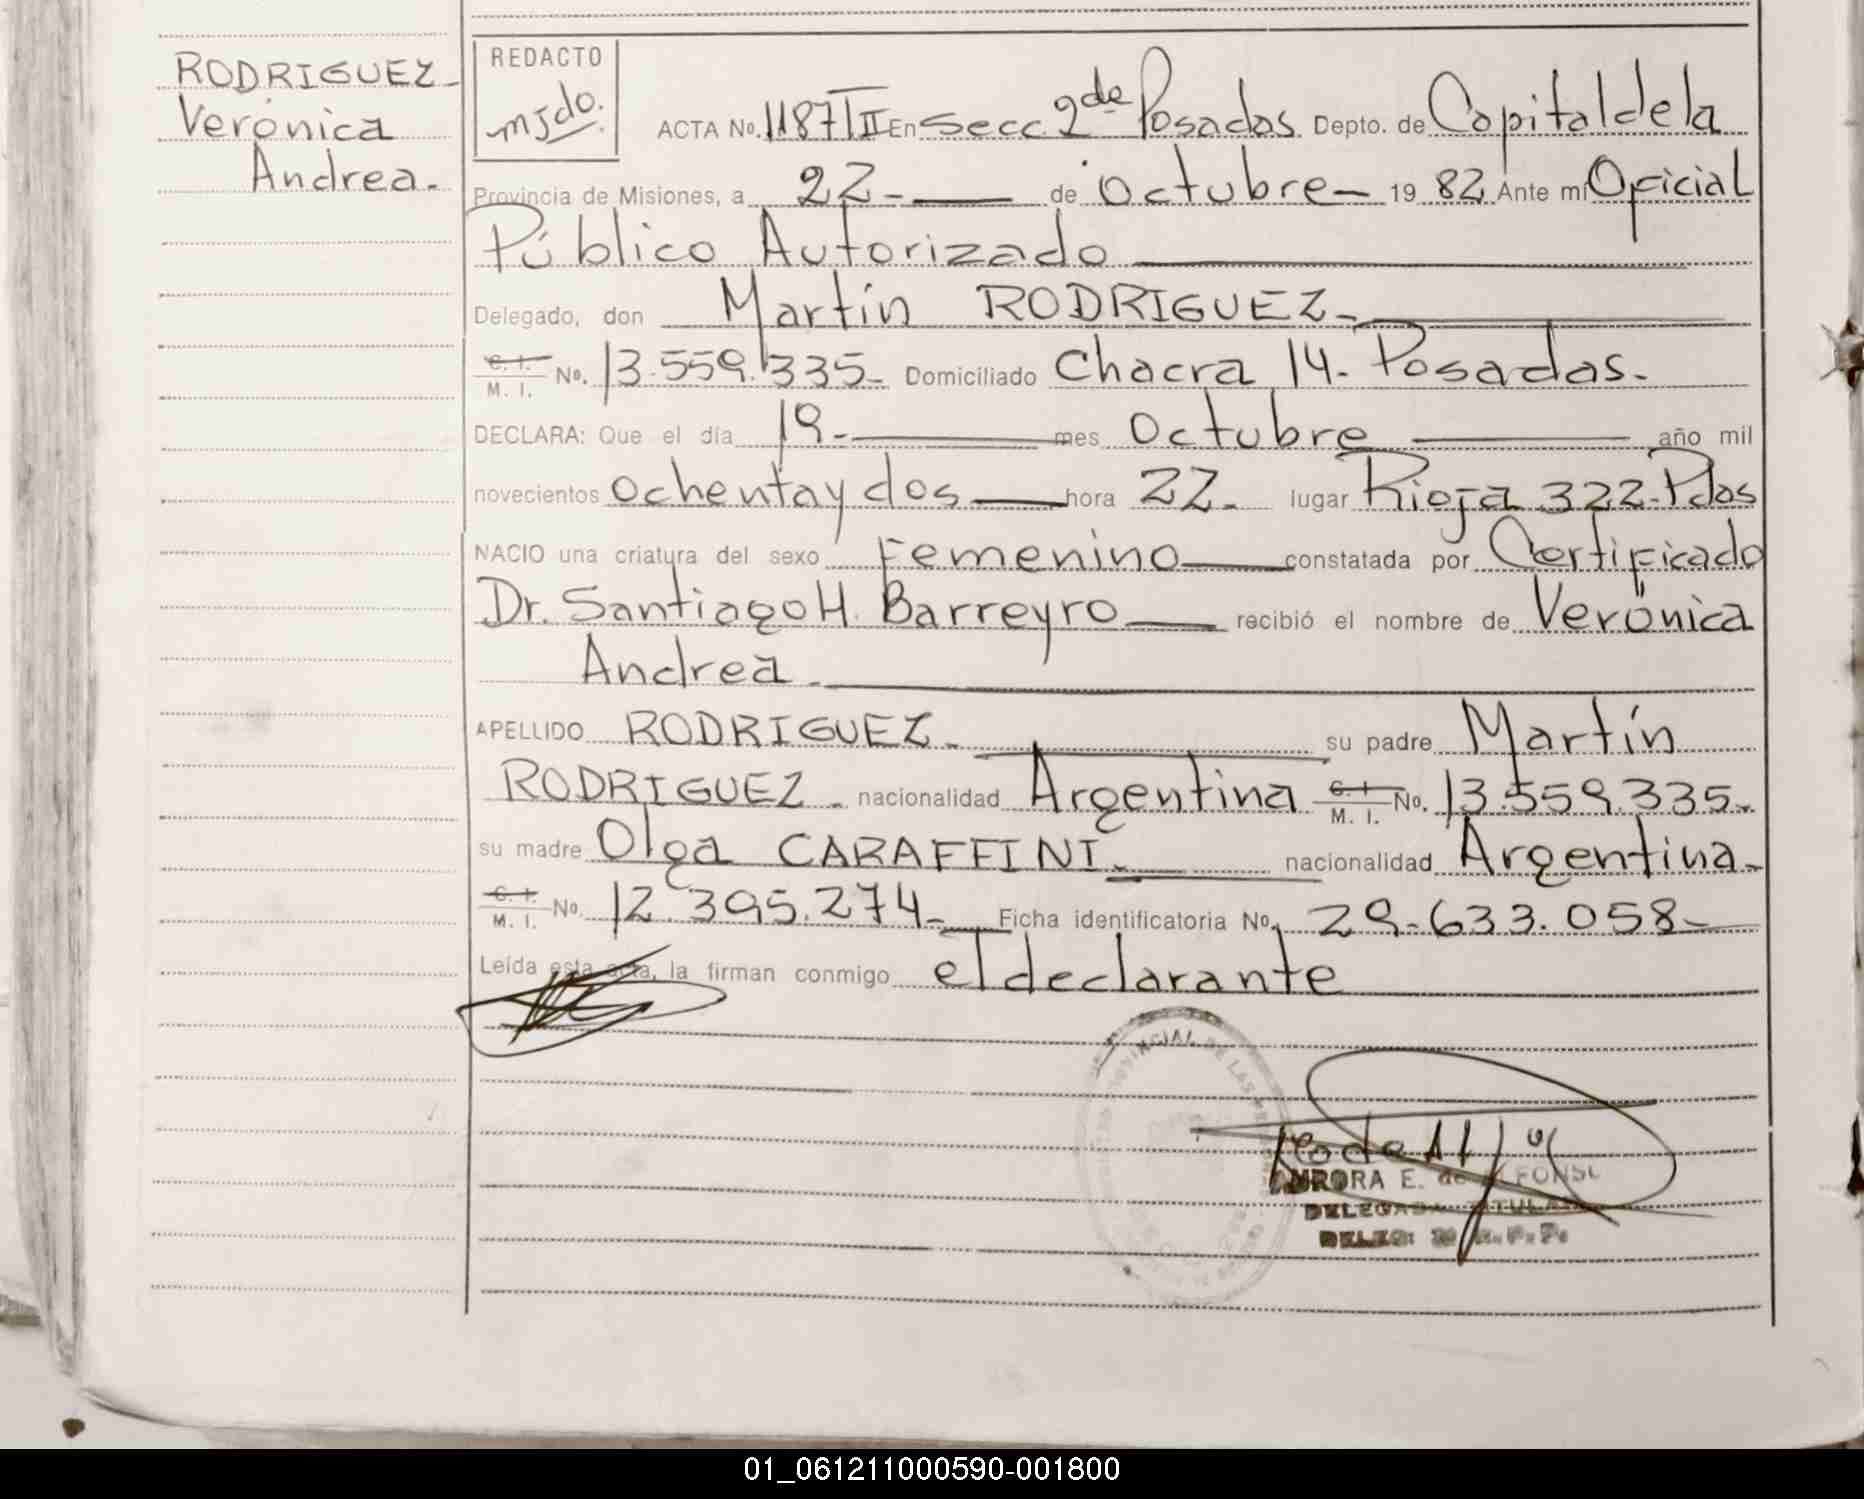 RODRIGUEZ
Verónica
Andrea.
REDACTO
mjdo.
ACTA No. 1187 TII En Secc 2da Posadas Depto. de Capital de la
Provincia de Misiones, a 22- de octubre 19 82 Ante mí Oficial
Público Autorizado
Delegado, don Martín RODRIGUEZ-
C. I. / M. I. No. 13.559.335- Domiciliado Chacra 14- Posadas-
DECLARA: Que el día 19- mes octubre año mil
novecientos ochenta y dos hora 22- lugar Rioja 322-Pdas
NACIO una criatura del sexo Femenino constatada por Certificado
Dr. Santiago H. Barreyro recibió el nombre de Verónica
Andrea-
APELLIDO RODRIGUEZ- su padre Martín
RODRIGUEZ- nacionalidad Argentina C. I. / M. I. No. 13.559.335-
su madre Olga CARAFFINI- nacionalidad Argentina-
C. I. / M. I. No. 12.395.274- Ficha identificatoria No. 29-633.058-
Leída esta acta, la firman conmigo el declarante
PROVINCIAL DE LAS
AURORA E. de ALFONSO
DELEGADA TITULAR
01_061211000590-001800